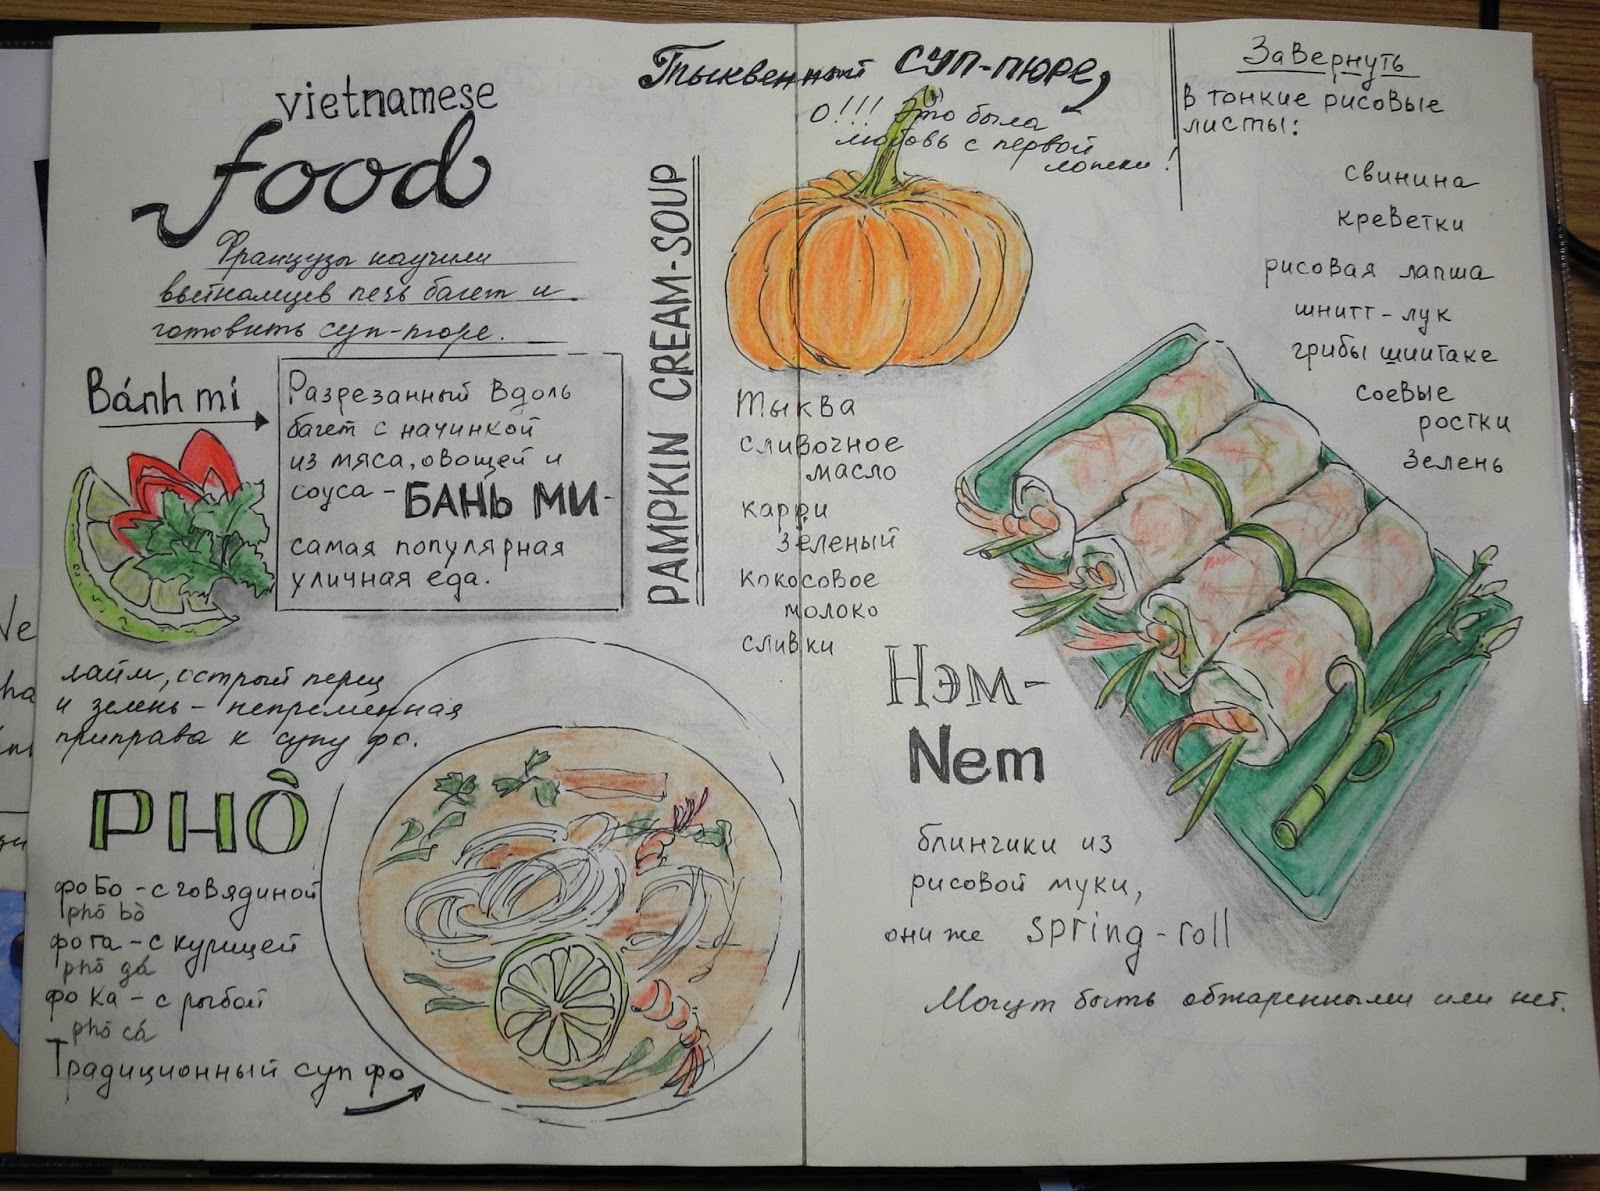 vietnamese
food
Французы научили
вьетнамцев печь багет и
готовить суп-пюре.
Bánh mì
Разрезанный вдоль
багет с начинкой
из мяса, овощей и
соуса - БАНЬ МИ -
самая популярная
уличная еда.
лайм, острый перец
и зелень - непременная
приправа к супу фо.
PHÒ
фо Бо - с говядиной
phô bò
фо га - с курицей
phô gá
фо Ка - с рыбой
phô cá
Традиционный суп фо
PAMPKIN CREAM-SOUP
Тыквенный суп-пюре
О!!! Это была
любовь с первой
ложки!
Тыква
сливочное
масло
карри
зеленый
кокосовое
молоко
сливки
Завернуть
в тонкие рисовые
листы:
свинина
креветки
рисовая лапша
шнитт-лук
грибы шиитаке
соевые
ростки
зелень
Нэм-
Nem
блинчики из
рисовой муки,
они же spring-roll
Могут быть обжаренными или нет.